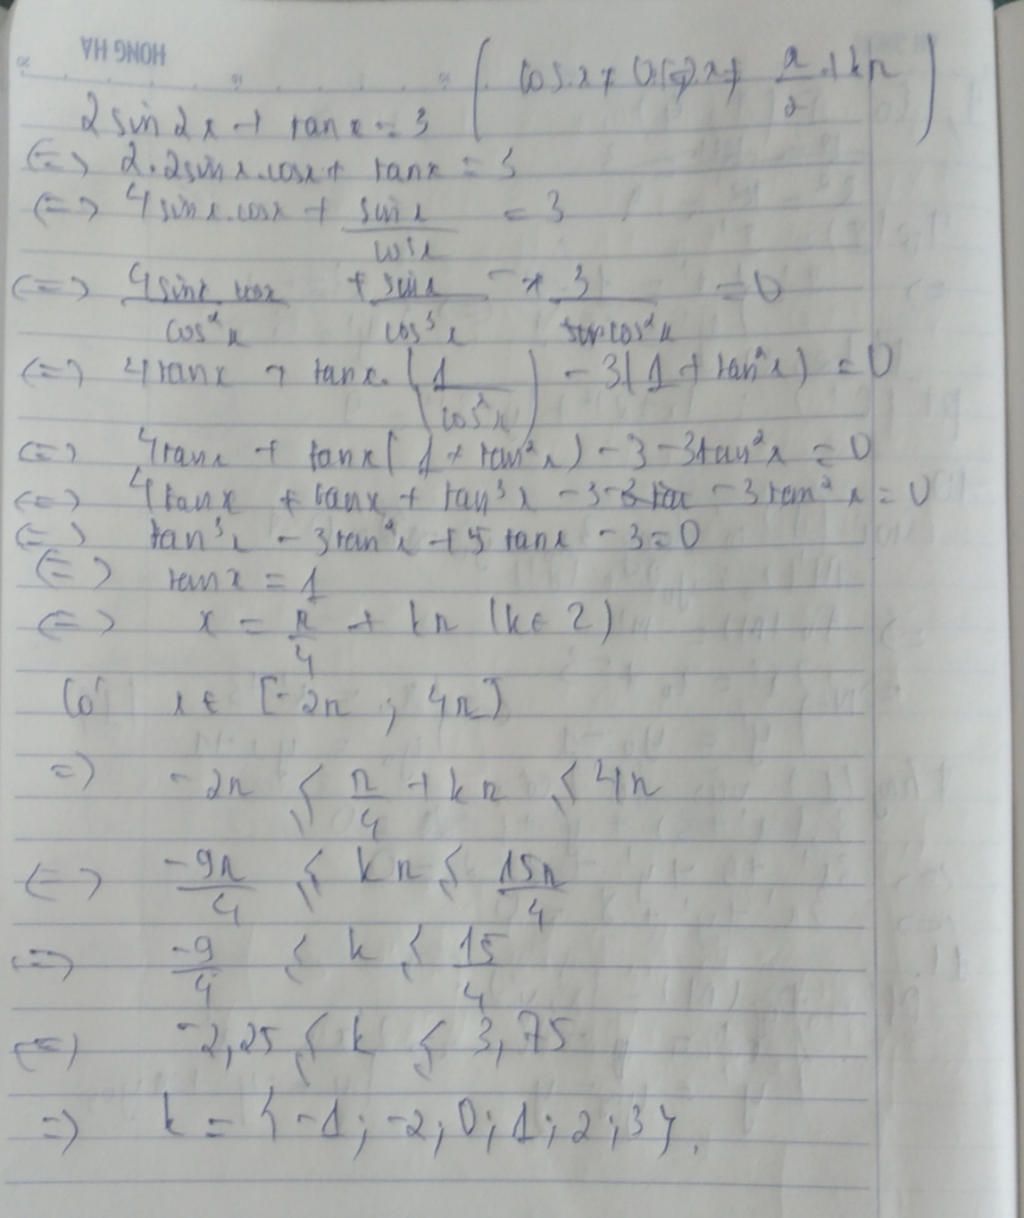 HONG HA
2sin2x + tanx = 3 (cosx ≠ 0 (=) x ≠ π/2 + kπ)
(=) 2.2sinx.cosx + tanx = 3
(=) 4sinx.cosx + sinx/cosx = 3
(=) 4sinx cosx/cos²x + sinx/cos³x - 3/cos²x = 0
(=) 4tanx + tanx.(1/cos²x) - 3(1 + tan²x) = 0
(=) 4tanx + tanx(1 + tan²x) - 3 - 3tan²x = 0
(=) 4tanx + tanx + tan³x - 3 - 3tan²x = 0
(=) tan³x - 3tan²x + 5tanx - 3 = 0
(=) tanx = 1
(=) x = π/4 + kπ (k ∈ Z)
Có x ∈ [-2π ; 4π]
=) -2π ≤ π/4 + kπ ≤ 4π
(=) -9π/4 ≤ kπ ≤ 15π/4
(=) -9/4 ≤ k ≤ 15/4
(=) -2,25 ≤ k ≤ 3,75
=) k = {-1; -2; 0; 1; 2; 3}.